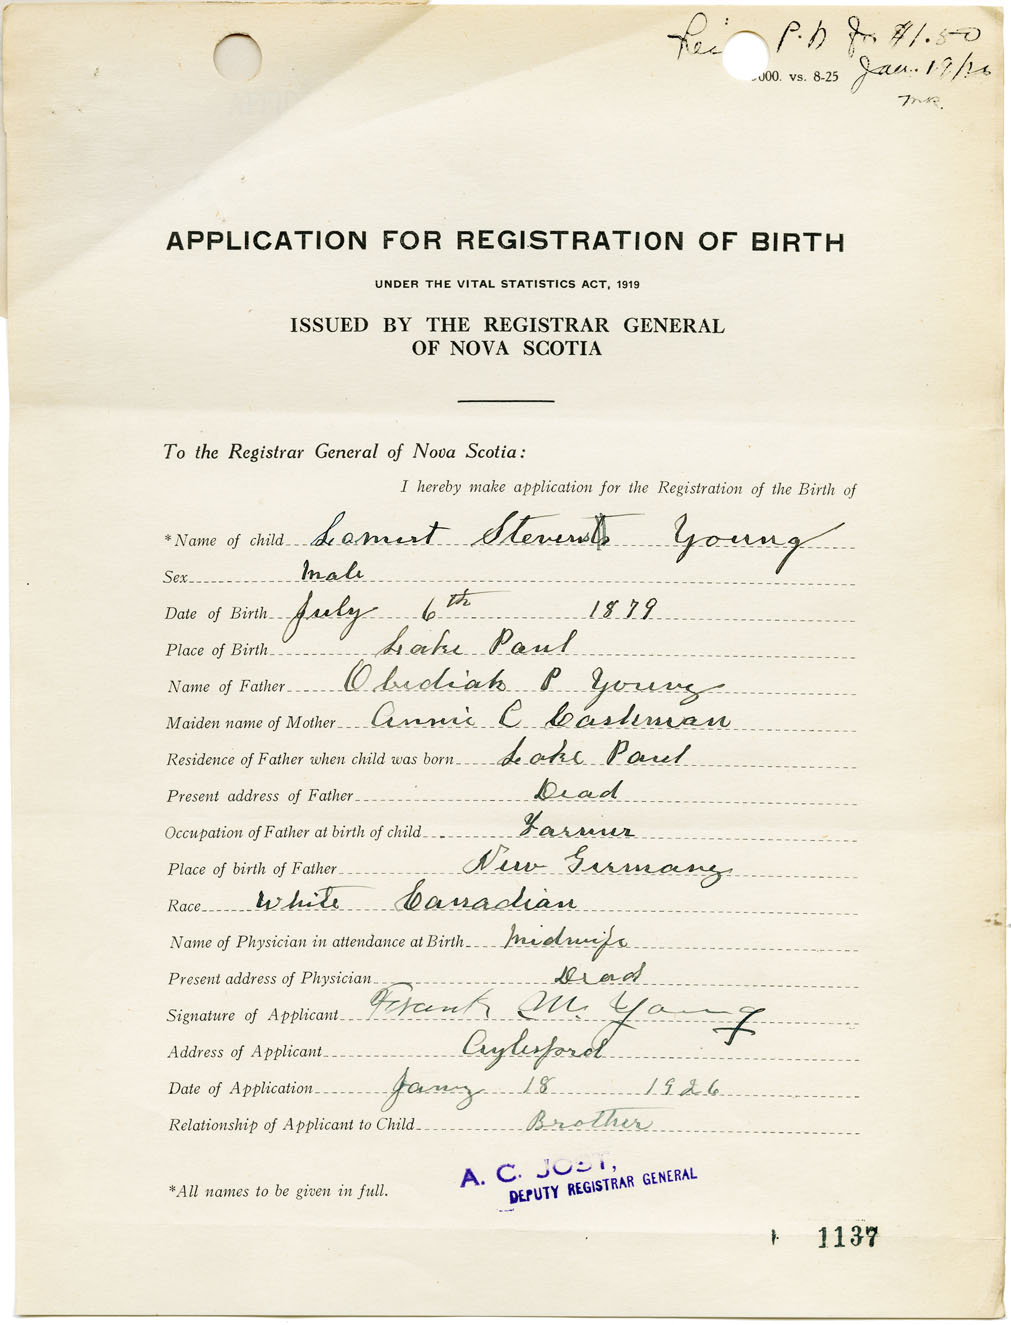 P. N for $1.50
000. vs. 8-25 Jan. 19/26
APPLICATION FOR REGISTRATION OF BIRTH
UNDER THE VITAL STATISTICS ACT, 1919
ISSUED BY THE REGISTRAR GENERAL
OF NOVA SCOTIA
To the Registrar General of Nova Scotia:
I hereby make application for the Registration of the Birth of
*Name of child Young
Sex Male
Date of Birth July 6th 1879
Place of Birth Lake Paul
Name of Father Obediah P Young
Maiden name of Mother Annie C Cashman
Residence of Father when child was born Lake Paul
Present address of Father Dead
Occupation of Father at birth of child Farmer
Place of birth of Father New Germany
Race White Canadian
Name of Physician in attendance at Birth Midwife
Present address of Physician Dead
Signature of Applicant Frank M. Young
Address of Applicant Aylesford
Date of Application Jany 18 1926
Relationship of Applicant to Child Brother
*All names to be given in full.
A. C. JOST,
DEPUTY REGISTRAR GENERAL
1137